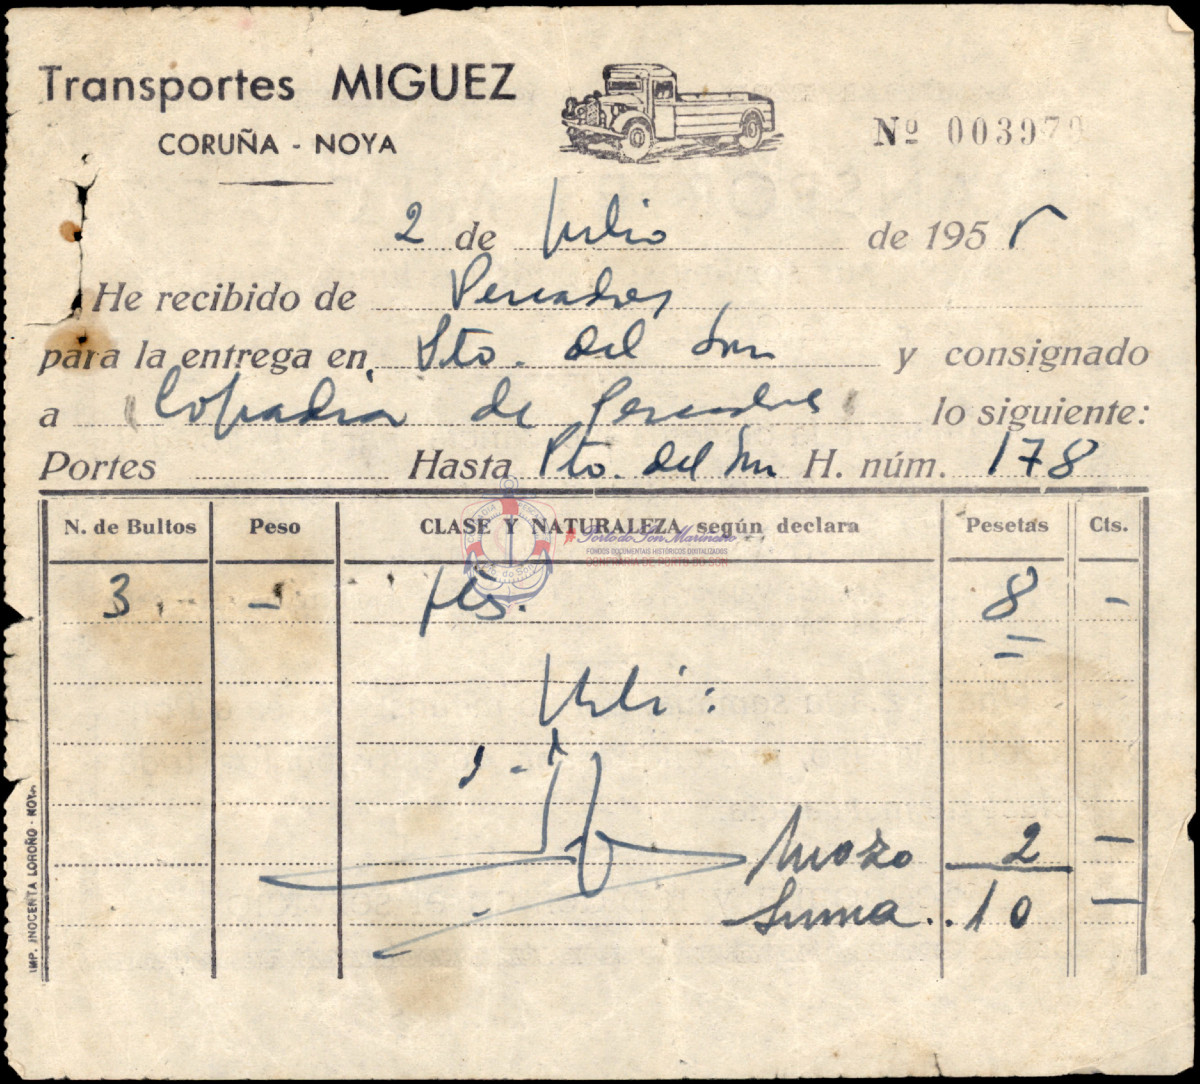 Transportes MIGUEZ
CORUÑA - NOYA
Nº 003979
2 de Julio de 1955
He recibido de Pescadores
para la entrega en Pto. del Son y consignado
a Cofradia de Pescadores lo siguiente:
Portes Hasta Pto. del Son H. núm. 178
N. de Bultos Peso CLASE Y NATURALEZA según declara Pesetas Cts.
Porto do Son Mariñeiro
FONDOS DOCUMENTAIS HISTÓRICOS DIXITALIZADOS
CONFRARIA DE PORTO DO SON
3. - 8 -
Mozo 2 -
Suma.. 10 -
IMP. INOCENTA LOROÑO - NOYA